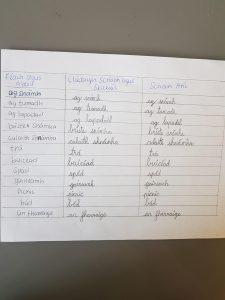 Féach agus Abair Clúdaigh Scríobh agus Seiceáil Scríobh Arís
ag snámh ag snámh ag snámh
ag tumadh ag tumadh ag tumadh
ag lapadaíl ag lapadaíl ag lapadaíl
bríste snámha bríste snámha bríste snámha
culaith shnámha culaith shnámha culaith shnámha
trá trá trá
buicéad buicéad buicéad
spád spád spád
gaineamh gaineamh gaineamh
picnic picnic picnic
bád bád bád
an fharraige an fharraige an fharraige